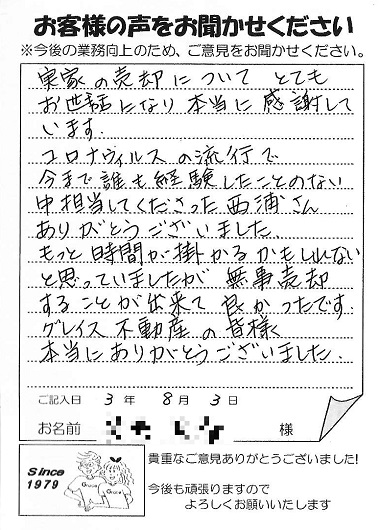 お客様の声をお聞かせください
※今後の業務向上のため、ご意見をお聞かせください。
実家の売却について とても
お世話になり本当に感謝して
います.
コロナウィルスの流行で
今まで誰も経験したことのない
中担当してくださった西浦さん
ありがとうございました.
もっと時間が掛かるかもしれない
と思っていましたが 無事売却
することが出来て良かったです.
グレイス不動産の皆様
本当にありがとうございました.
ご記入日 3 年 8 月 3 日
お名前 様
Since
1979
Grace
Grace
貴重なご意見ありがとうございました!
今後も頑張りますので
よろしくお願いいたします